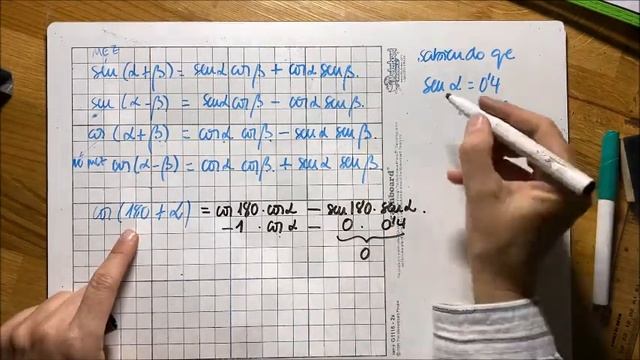 MEZ
sin (α+β) = senα cosβ + cosα senβ.
sen (α-β) = senα cosβ - cosα senβ.
cos (α+β) = cosα cosβ - senα senβ.
no mez cos (α-β) = cosα cosβ + senα senβ.
cos (180 + α) = cos 180 · cosα - sen 180 · senα.
-1 · cosα - 0 · 0'4
0
sabiendo que
sen α = 0'4